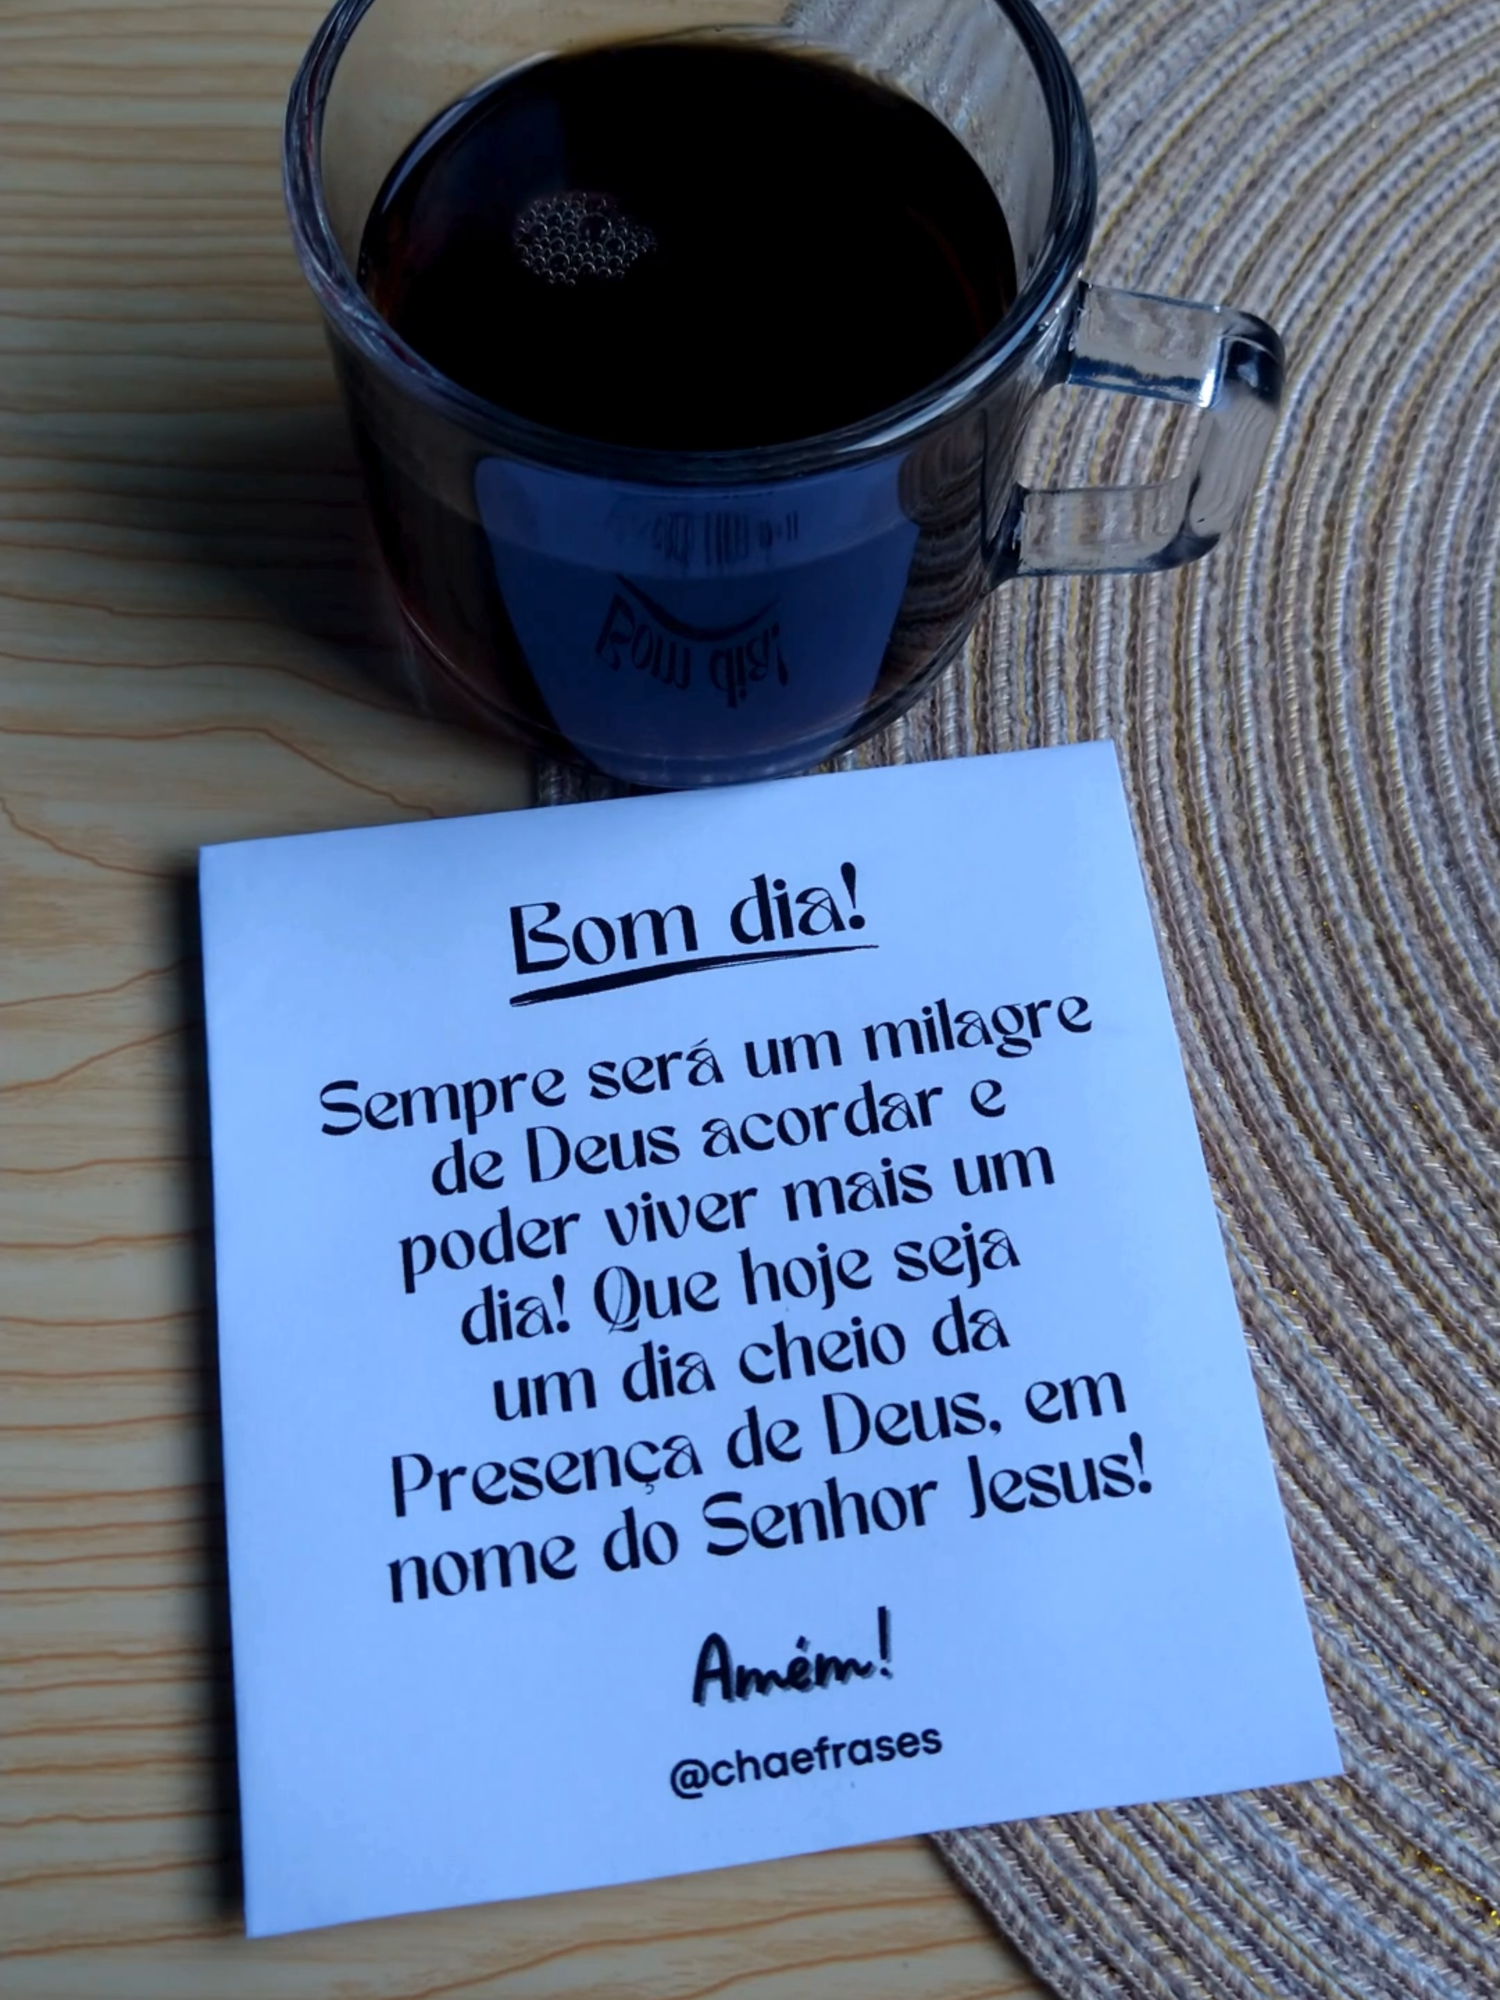 Bom dia!
Sempre será um milagre
de Deus acordar e
poder viver mais um
dia! Que hoje seja
um dia cheio da
Presença de Deus, em
nome do Senhor Jesus!
Amém!
@chaefrases